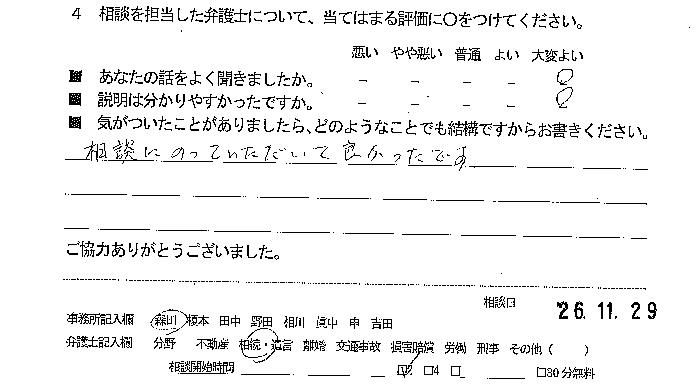 4 相談を担当した弁護士について、当てはまる評価に〇をつけてください。
悪い やや悪い 普通 よい 大変よい
■ あなたの話をよく聞きましたか。 － － － － 〇
■ 説明は分かりやすかったですか。 － － － － 〇
■ 気がついたことがありましたら、どのようなことでも結構ですからお書きください。
相談にのっていただいて良かったです
ご協力ありがとうございました。
相談日 '26.11.29
事務所記入欄 森川 榎本 田中 野田 相川 眞中 申 吉田
弁護士記入欄 分野 不動産 相続・遺言 離婚 交通事故 損害賠償 労働 刑事 その他（ ）
相談開始時間 □4 □ □30分無料